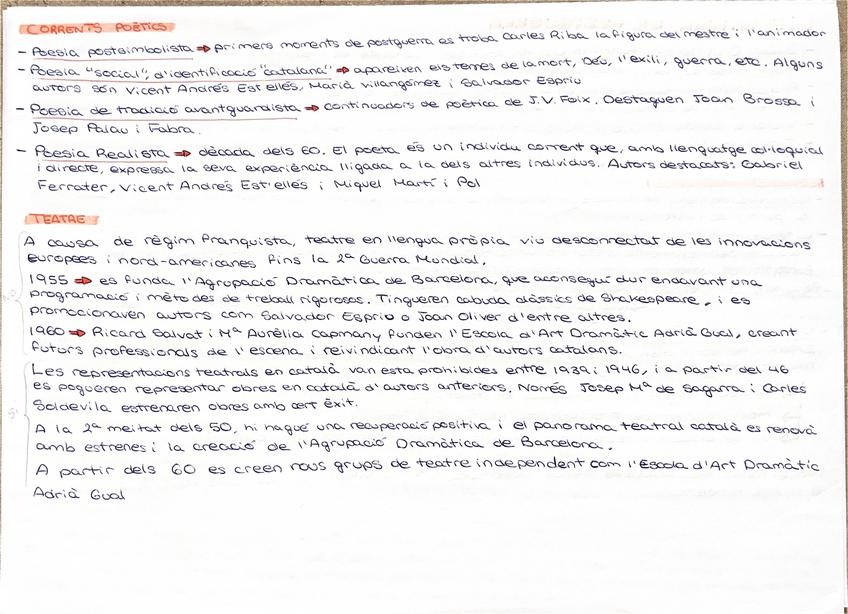 CORRENTS POÈTICS
- Poesia postsimbolista → primers moments de postguerra es troba Carles Riba la figura del mestre i l'animador
- Poesia "social", d'identificació "catalana" → apareixen els temes de la mort, Déu, l'exili, guerra, etc. Alguns
autors són Vicent Andrés Estellés, Marià Villangómez i Salvador Espriu
- Poesia de tradició avantguardista → continuadors de poètica de J.V. Foix. Destaquen Joan Brossa i
Josep Palau i Fabra.
- Poesia Realista → dècada dels 60. El poeta és un individu corrent que, amb llenguatge col·loquial
i directe, expressa la seva experiència lligada a la dels altres individus. Autors destacats: Gabriel
Ferrater, Vicent Andrés Estellés i Miquel Martí i Pol
TEATRE
A causa de règim franquista, teatre en llengua pròpia viu desconnectat de les innovacions
europees i nord-americanes fins la 2ª Guerra Mundial.
1955 → es funda l'Agrupació Dramàtica de Barcelona, que aconseguí dur endavant una
programació i mètodes de treball rigorosos. Tingueren cabuda clàssics de Shakespeare, i es
promocionaven autors com Salvador Espriu o Joan Oliver d'entre altres.
1960 → Ricard Salvat i Mª Aurèlia Capmany funden l'Escola d'Art Dramàtic Adrià Gual, creant
futurs professionals de l'escena i reivindicant l'obra d'autors catalans.
Les representacions teatrals en català van esta prohibides entre 1939 i 1946, i a partir del 46
es pogueren representar obres en català d'autors anteriors. Només Josep Mª de Sagarra i Carles
Soldevila estrenaren obres amb cert èxit.
A la 2ª meitat dels 50, hi hagué una recuperació positiva i el panorama teatral català es renovà
amb estrenes i la creació de l'Agrupació Dramàtica de Barcelona.
A partir dels 60 es creen nous grups de teatre independent com l'Escola d'Art Dramàtic
Adrià Gual